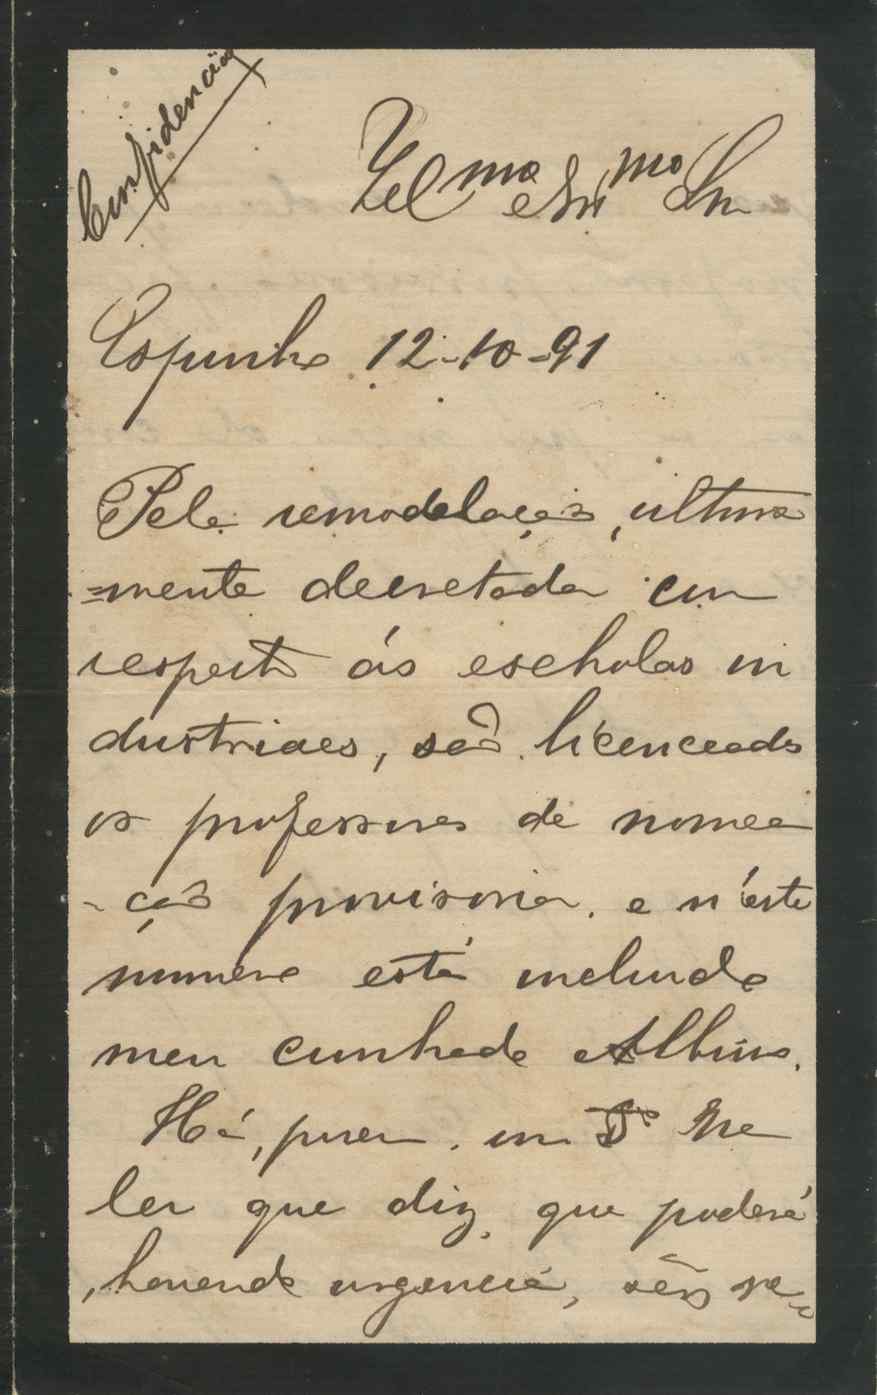 Confidencial
Ill.mo e Exmo Snr
Espinho 12-10-91
Pela remodelação, ultima
=mente decretada com
respeito ás escholas in
dustriaes, são licenceados
os professores de nomea
-ção provisoria, e n'este
numero está incluido
meu cunhado Albino.
Há, porem, um §
que diz, que poderá
, havendo urgencia,